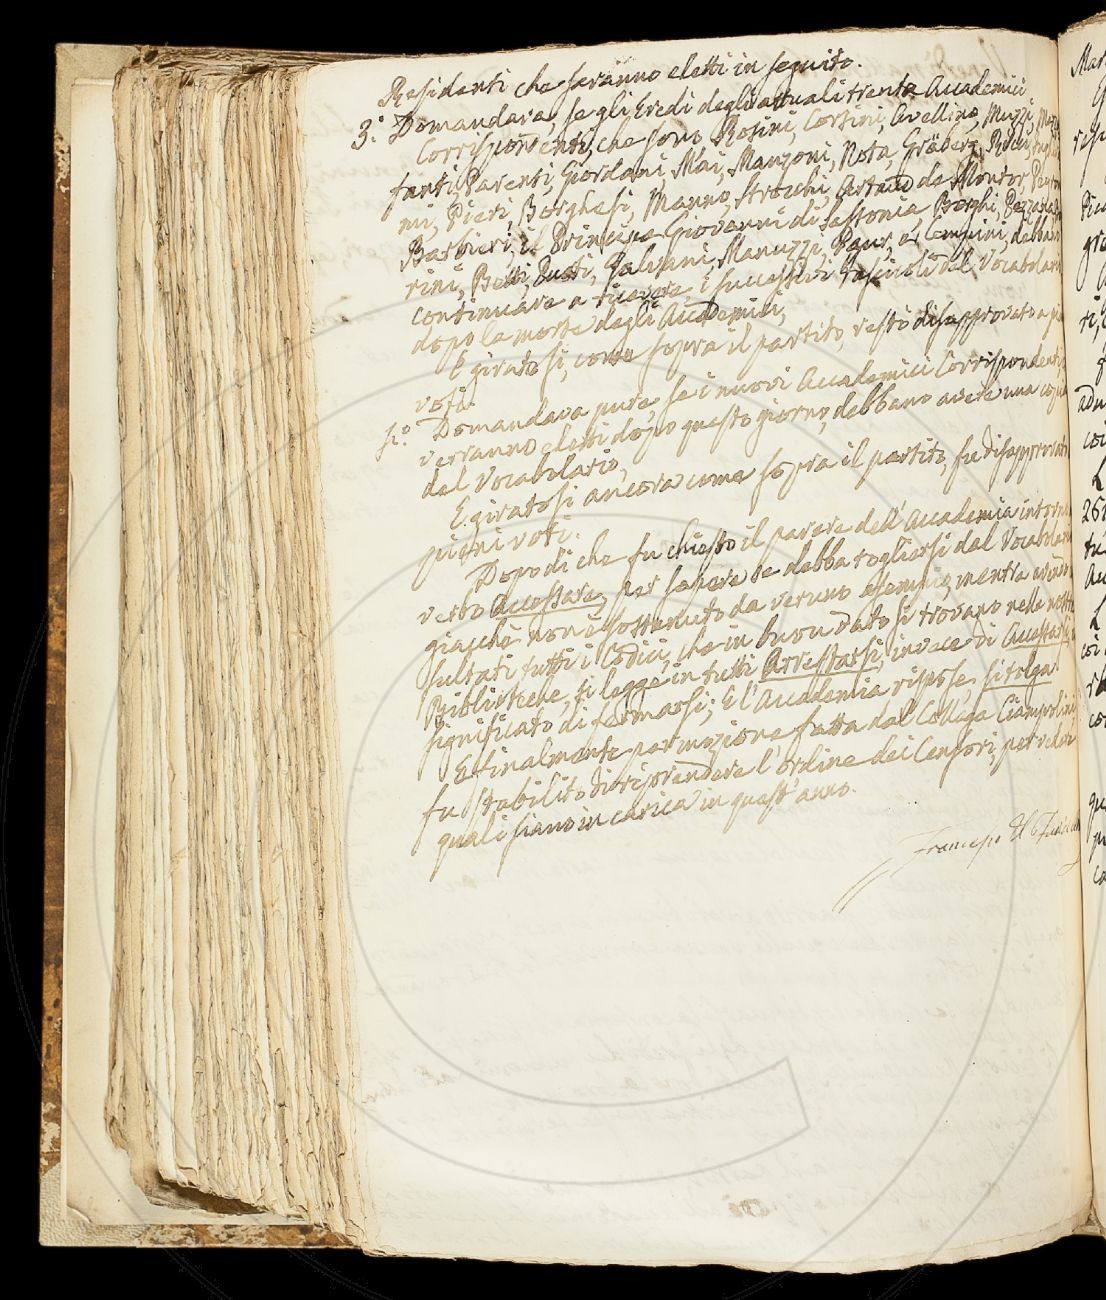 Residenti che saranno eletti in seguito.
3.° Domandava, se gli Eredi degli attuali trenta Accademici
Corrispondenti, che sono Rosini, Cortini, Avellino, Muzzi,
fanti Parenti, Giordani, Mai, Manzoni, Nota, Gräberg,
mi, Pieri, Borghesi, Manno, Strocchi, Artaud de Montor,
Barbieri, il Principe Giovanni di Sassonia, Borghi,
rini, Betti, Puoti, Galvani, Manuzzi, Paur, e Cempini, debbano
continuare a ricevere i successivi fascicoli del Vocabolario
dopo la morte degli Accademici,
E giratosi, come sopra il partito, restò disapprovato a
voti.
4.° Domandava pure, se i nuovi Accademici Corrispondenti
verranno eletti dopo questo giorno, debbano avere una copia
del Vocabolario,
E giratosi ancora come sopra il partito, fu disapprovato
pieni voti.
Dopo di che fu chiesto il parere dell'Accademia intorno
verbo Accostare, per sapere se debba togliersi dal Vocabolario
giacchè non è sostenuto da veruno esempio, mentre
sultati tutti i Codici, che in buon dato si trovano nelle nostre
Biblioteche, si legge in tutti Arrestarsi, invece di
significato di fermarsi; E l'Accademia rispose, si tolga
E finalmente per mozione fatta dal Collega Ciampolini
fu stabilito di riprendere l'ordine dei Censori, per vedere
quali siano in carica in quest'anno.